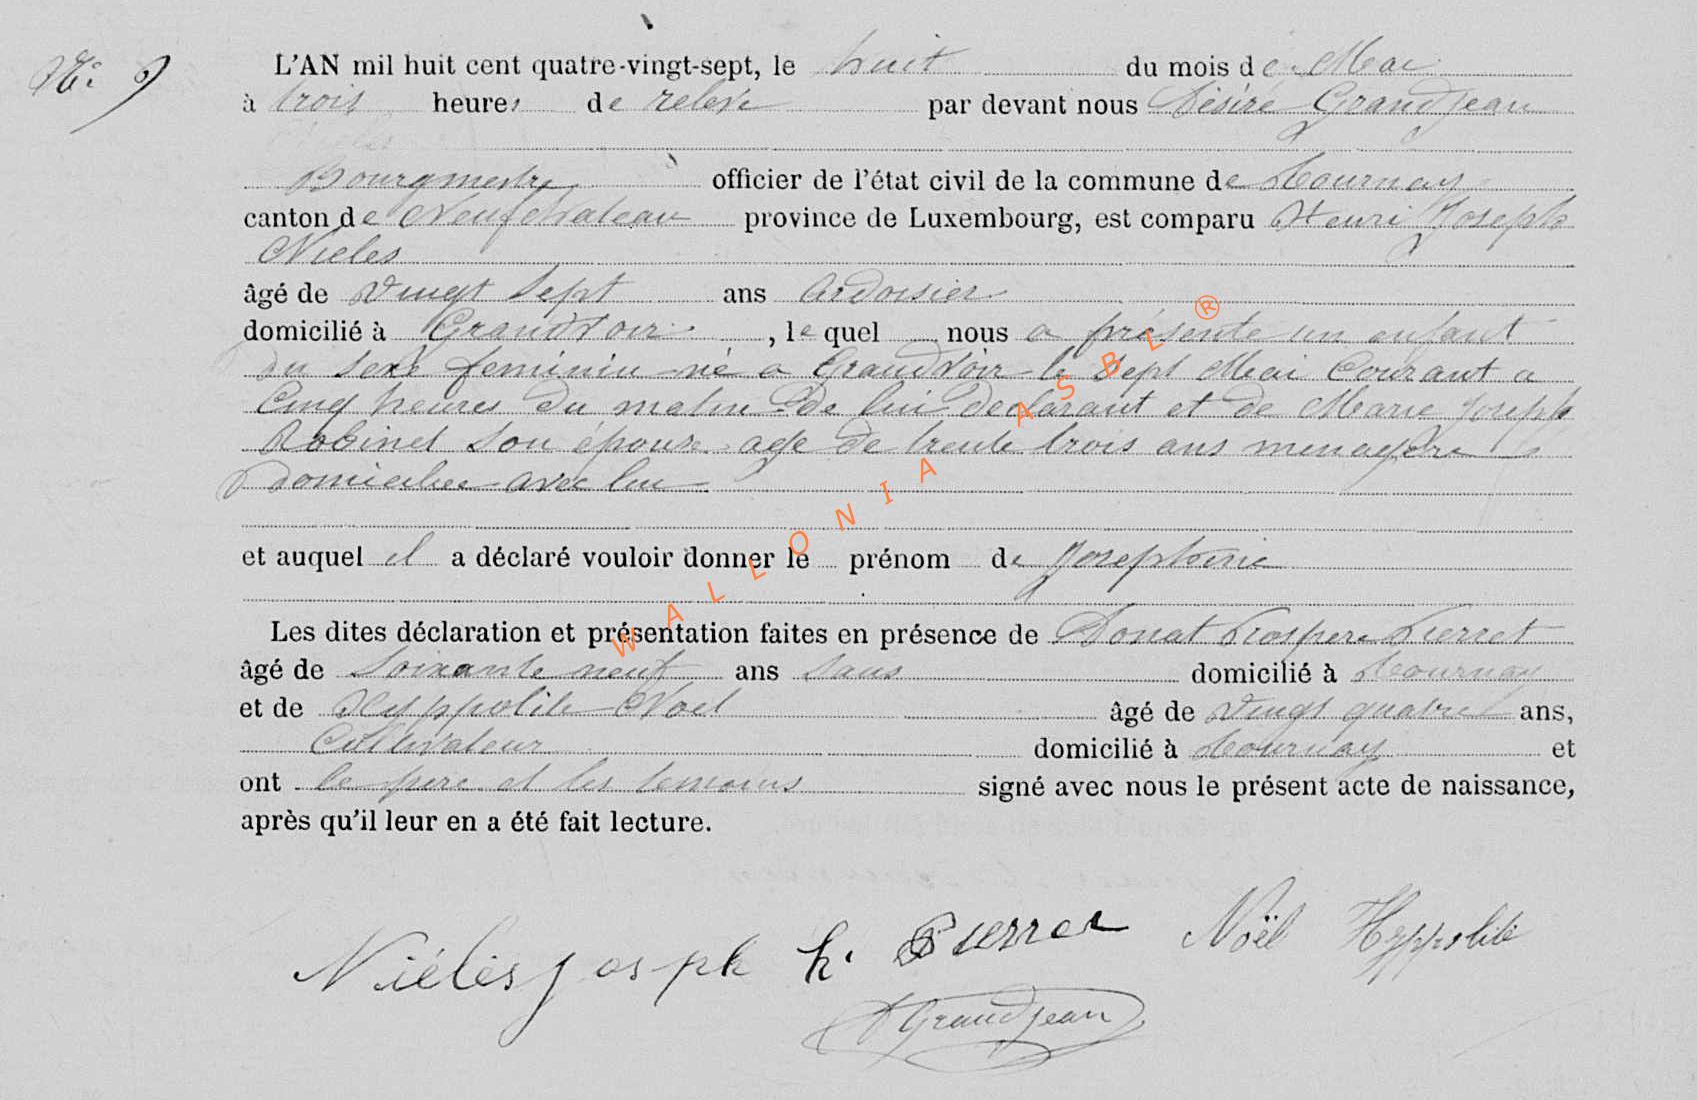 No 9
L'AN mil huit cent quatre-vingt-sept, le huit du mois de Mai
à trois heures de relevée par devant nous Désiré Grandjean
Bourgmestre officier de l'état civil de la commune de Tournay
canton de Neufchateau province de Luxembourg, est comparu Henri Joseph
Nieles
âgé de vingt sept ans ardoisier
domicilié à Grandvoir, lequel nous a présenté un enfant
du sexe feminin né a Grandvoir le sept Mai Courant a
Cinq heures du matin de lui declarant et de Marie Joseph
Robinet son épouse age de trente trois ans menagère
domiciliee avec lui
et auquel il a déclaré vouloir donner le prénom de Josephine
Les dites déclaration et présentation faites en présence de Donat Prosper Pierret
âgé de soixante neuf ans sans domicilié à Tournay
et de Hyppolite Noel âgé de vingt quatre ans,
Cultivateur domicilié à Tournay et
ont le pere et les temoins signé avec nous le présent acte de naissance,
après qu'il leur en a été fait lecture.
Niélès Josph h. Pierret Noël Hyppolite
D Grandjean
WALLONIA ASBL ®